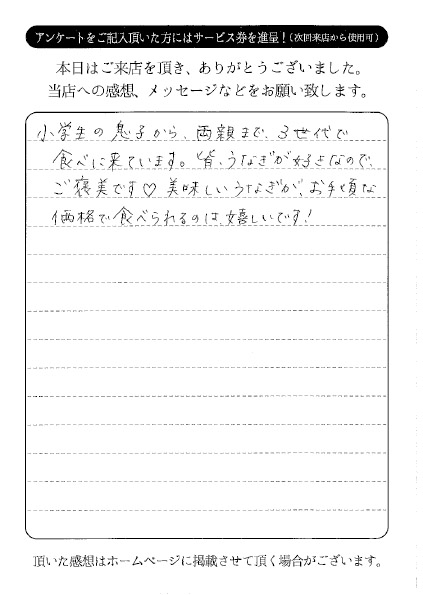 アンケートをご記入頂いた方にはサービス券を進呈！(次回来店から使用可)
本日はご来店を頂き、ありがとうございました。
当店への感想、メッセージなどをお願い致します。
小学生の息子から、両親まで、3世代で
食べに来ています。皆、うなぎが好きなので、
ご褒美です♡ 美味しいうなぎが、お手頃な
価格で食べられるのは、嬉しいです！
頂いた感想はホームページに掲載させて頂く場合がございます。